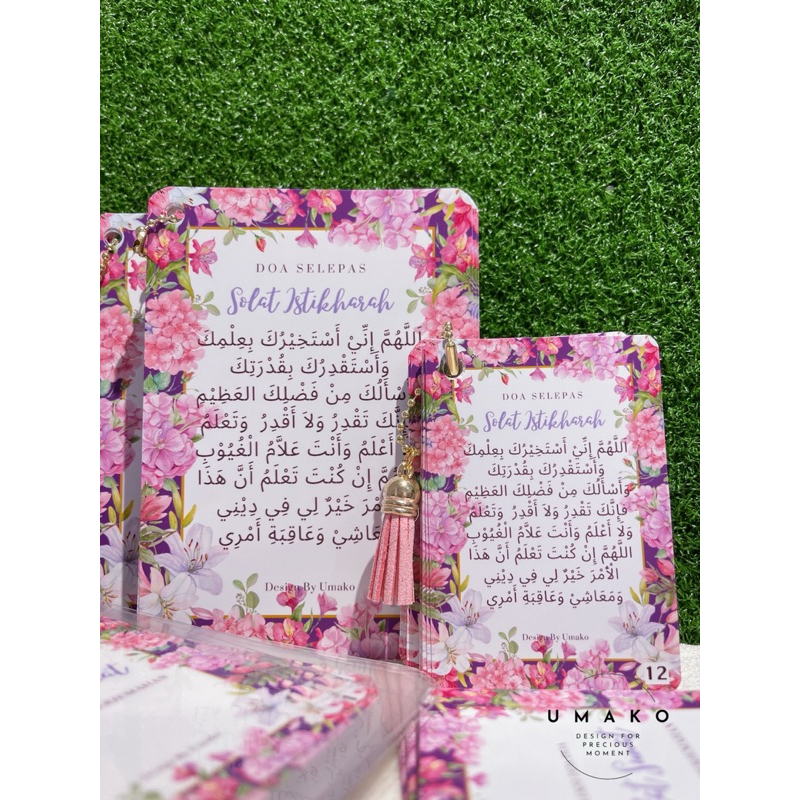 DOA SELEPAS
Solat Istikharah
اَللَّهُمَّ إِنِّيْ أَسْتَخِيْرُكَ بِعِلْمِكَ
وَأَسْتَقْدِرُكَ بِقُدْرَتِكَ
مِنْ فَضْلِكَ العَظِيْمِ
تَقْدِرُ وَلاَ أَقْدِرُ وَتَعْلَمُ
أَعْلَمُ وَأَنْتَ عَلاَّمُ الْغُيُوْبِ
إِنْ كُنْتَ تَعْلَمُ أَنَّ هَذَا
خَيْرٌ لِي فِي دِيْنِي
وَعَاقِبَةِ أَمْرِي
Design By Umako
DOA SELEPAS
Solat Istikharah
اَللَّهُمَّ إِنِّيْ أَسْتَخِيْرُكَ بِعِلْمِكَ
وَأَسْتَقْدِرُكَ بِقُدْرَتِكَ
وَأَسْأَلُكَ مِنْ فَضْلِكَ العَظِيْمِ
فَإِنَّكَ تَقْدِرُ وَلاَ أَقْدِرُ وَتَعْلَمُ
وَلاَ أَعْلَمُ وَأَنْتَ عَلاَّمُ الْغُيُوْبِ
اللَّهُمَّ إِنْ كُنْتَ تَعْلَمُ أَنَّ هَذَا
الأَمْرَ خَيْرٌ لِي فِي دِيْنِي
وَمَعَاشِيْ وَعَاقِبَةِ أَمْرِي
Design By Umako
12
UMAKO
DESIGN FOR
PRECIOUS
MOMENT